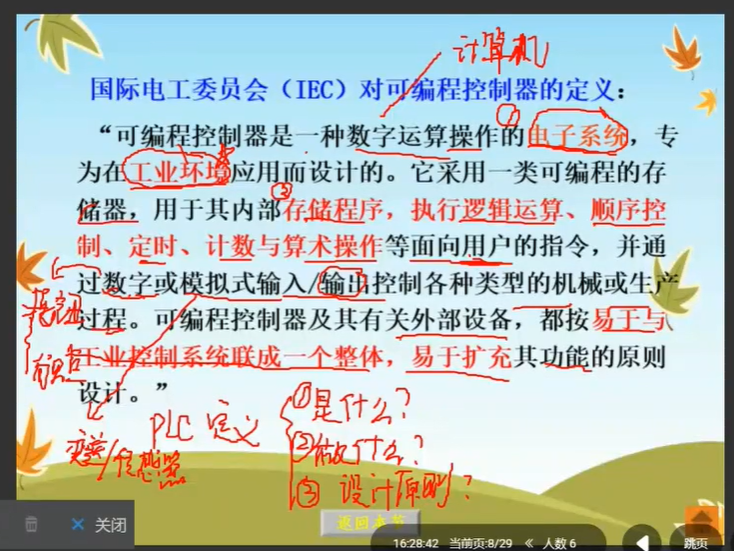 计算机
国际电工委员会（IEC）对可编程控制器的定义：
①
“可编程控制器是一种数字运算操作的电子系统，专
为在工业环境应用而设计的。它采用一类可编程的存
②
储器，用于其内部存储程序，执行逻辑运算、顺序控
制、定时、计数与算术操作等面向用户的指令，并通
过数字或模拟式输入/输出控制各种类型的机械或生产
过程。可编程控制器及其有关外部设备，都按易于与
工业控制系统联成一个整体，易于扩充其功能的原则
设计。”
PLC 定义
①是什么？
②做什么？
③设计原则？
变送/传感器
返回本节
关闭
16:28:42 当前页:8/29 《 人数 6
跳页